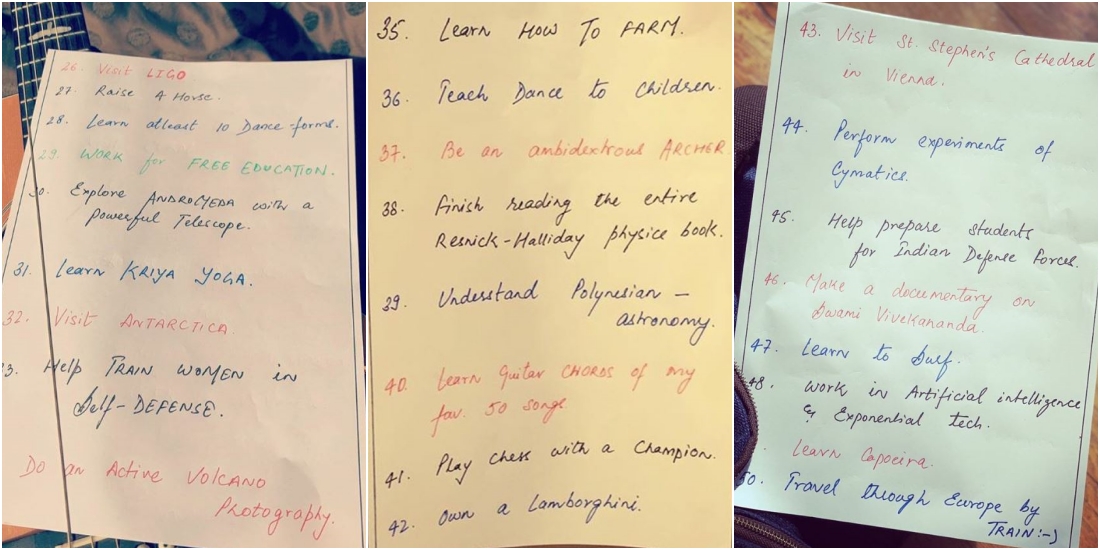 26. Visit LIGO
27. Raise A Horse.
28. Learn atleast 10 Dance-forms.
29. WORK for FREE EDUCATION.
30. Explore ANDROMEDA with a
powerful Telescope.
31. Learn KRIYA YOGA.
32. Visit ANTARCTICA.
3. Help TRAIN WOMEN in
Self-DEFENSE.
Do an Active VOLCANO
Photography.
35. Learn HOW TO FARM.
36. Teach Dance to Children.
37. Be an ambidextrous ARCHER
38. Finish reading the entire
Resnick-Halliday physics book.
39. Understand Polynesian -
astronomy.
40. Learn Guitar CHORDS of my
fav. 50 songs.
41. Play chess with a Champion.
42. Own a Lamborghini.
43. Visit St. Stephen's Cathedral
in Vienna.
44. Perform experiments of
Cymatics.
45. Help prepare students
for Indian Defense Forces.
46. Make a documentary on
Swami Vivekananda.
47. Learn to Surf.
48. Work in Artificial intelligence
& Exponential tech.
. Learn Capoeira.
50. Travel through Europe by
TRAIN :-)